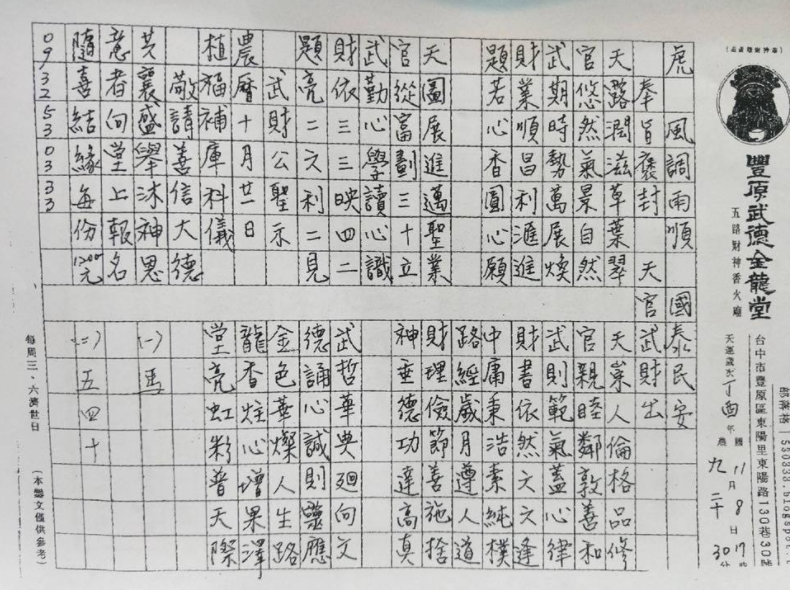 部落格 550333.blogspot.t
台中市豐原區東陽里東陽路130巷30號
豐原武德金龍堂
五路財神香火廟
天運歲次丁酉年 國11月8日17時 農九二十 30分
虎 風調雨順 國泰民安
奉旨褒封 天官武財出
天露潤滋草葉翠
官悠然氣景自然
武期時勢萬展煥
財業順昌利滙進
題若心香圓心願
天圖展進邁聖業
官從富劃三十立
武勤心學讀心識
財依三三映四二
題亮二文利二見
武財公聖示
農曆十月廿一日
植福補庫科儀
敬請善信大德
共襄盛舉沐神恩
意者向堂上報名
隨喜結緣每份1200元
0932530333
天崇人倫格品修
官親睦鄰敦善和
武則範氣蓋心律
財書依然文文逢
中庸秉浩素純樸
路經歲月遵人道
財理儉節善施捨
神垂德功達高真
武哲華典廻向文
德誦心誠則靈應
金色華燦人生路
龍香炷心增果澤
堂亮虹彩普天際
(一)馬
(二)五四十
每周三、六濟世日 (本鸞文僅供參考)